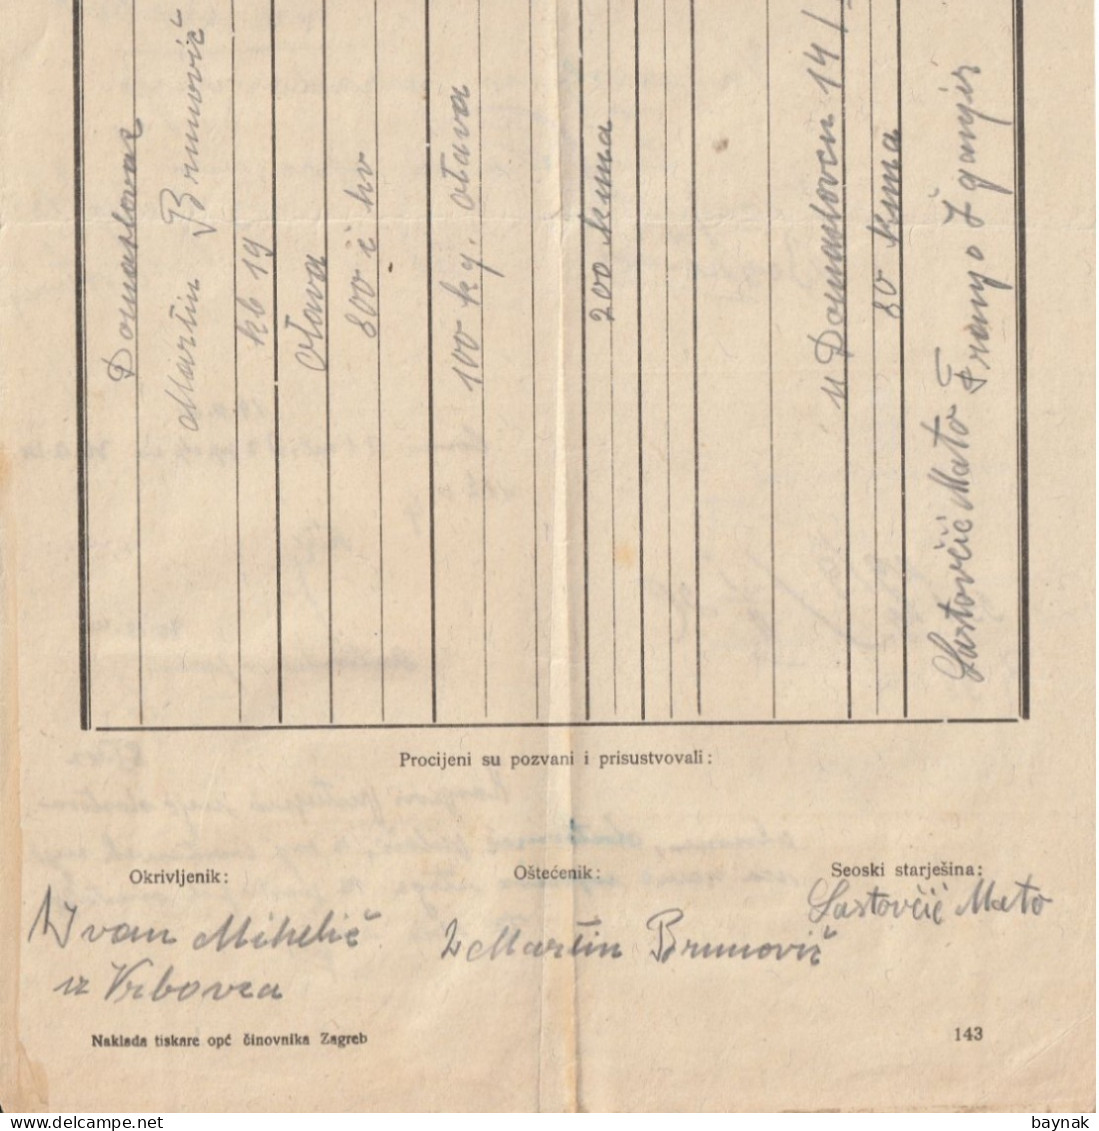 Domaslovac
Martin Brunović
kb 19
otava
800 č hv
100 kg. otava
200 kuna
u Domaslovcu 14/
80 kuna
Lastovčić Mato Franjo Žganjir
Procijeni su pozvani i prisustvovali:
Okrivljenik: Oštećenik: Seoski starješina:
Ivan Mihelić Martin Brunović Lastovčić Mato
iz Vrbovca
Naklada tiskare opć činovnika Zagreb 143
baynak